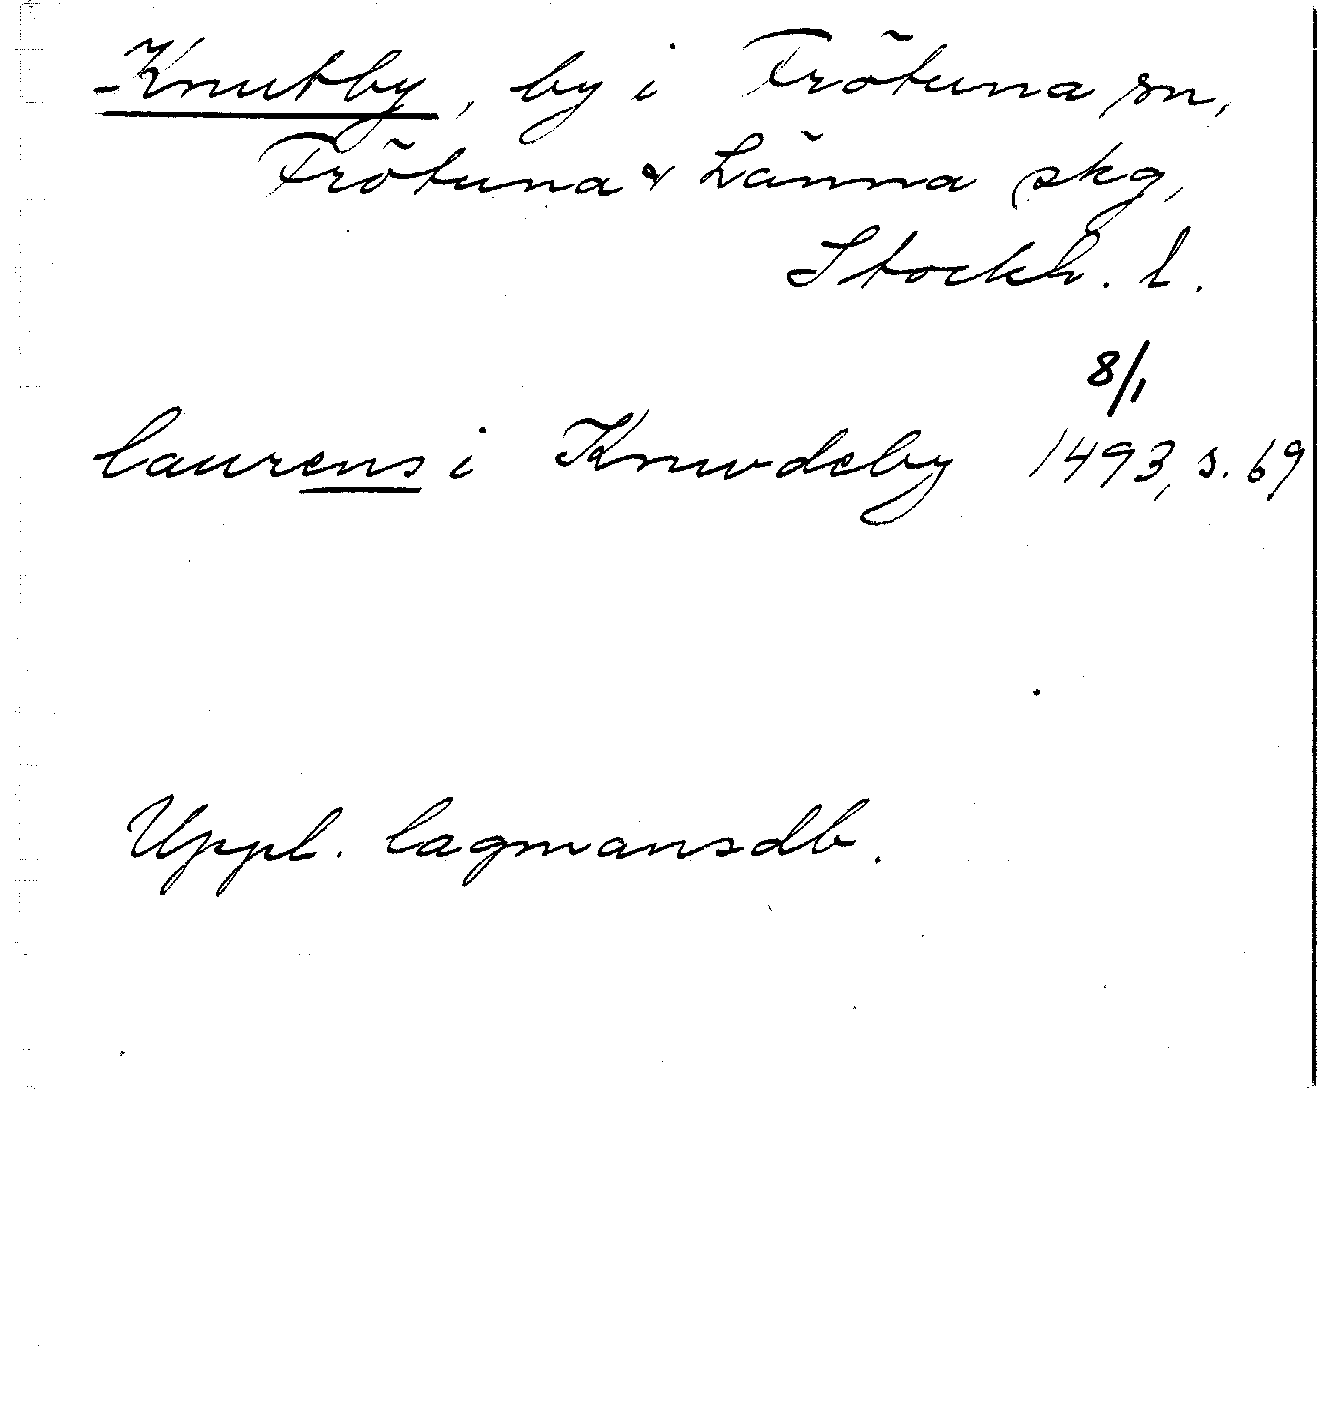 Knutby, by i Frötuna sn,
Frötuna & Länna skg,
Stockh. l.
8/1
laurens i Knwdeby 1493, s. 69
Uppl. lagmansdb.